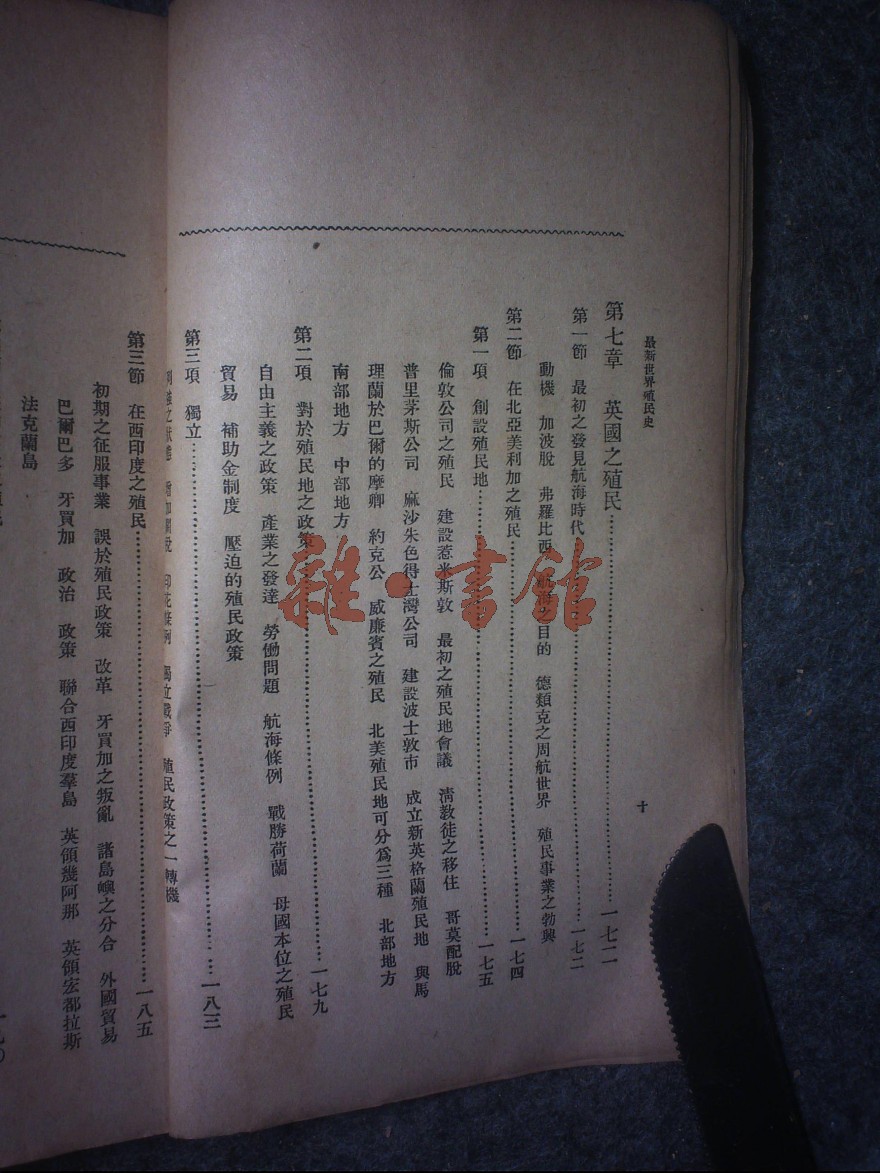 最新世界殖民史
十
第七章 英國之殖民……一七二
第一節 最初之發見航海時代……一七二
動機 加波脫 弗羅比西 之目的 德類克之周航世界 殖民事業之勃興
第二節 在北亞美利加之殖民……一七四
第一項 創設殖民地……一七五
倫敦公司之殖民 建設惹米斯敦 最初之殖民地會議 淸敎徒之移住 哥莫配脫
普里茅斯公司 麻沙朱色得士灣公司 建設波士敦市 成立新英格蘭殖民地 與馬
理蘭於巴爾的摩卿 約克公 威廉賓之殖民 北美殖民地可分爲三種 北部地方
南部地方 中部地方
第二項 對於殖民地之政策……一七九
自由主義之政策 產業之發達 勞働問題 航海條例 戰勝荷蘭 母國本位之殖民
貿易 補助金制度 壓迫的殖民政策
第三項 獨立……一八三
之狀態 增加關稅 印花條例 獨立戰爭 殖民政策之一轉機
第三節 在西印度之殖民……一八五
初期之征服事業 誤於殖民政策 改革 牙買加之叛亂 諸島嶼之分合 外國貿易
巴爾巴多 牙買加 政治 政策 聯合西印度羣島 英領幾阿那 英領宏都拉斯
法克蘭島
雜·書館